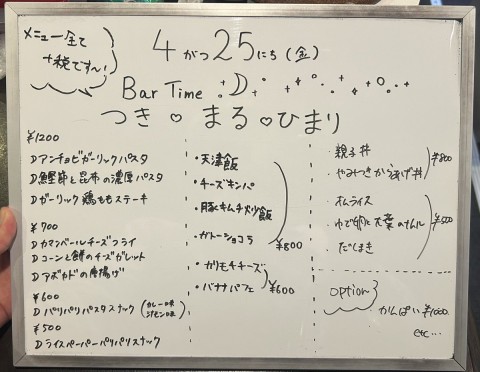 メニュー全て
+税です〜!
4がつ25にち(金)
Bar Time
つき♡まる♡ひまり
¥1200
D アンチョビガーリックパスタ
D 鰹節と昆布の濃厚パスタ
D ガーリック鶏ももステーキ
¥700
D カマンベールチーズフライ
D コーンと餅のチーズガレット
D アボカドの唐揚げ
¥600
D パリパリパスタスナック(カレー味
コンソメ味)
¥500
D ライスペーパーパリパリスナック
・天津飯
・チーズキンパ
・豚キムチ炒飯
・ガトーショコラ
¥800
・カリモチチーズ
・バナナパフェ
¥600
・親子丼
・やみつきからあげ丼
¥800
・オムライス
・ゆで卵と大葉の
・だしまき
¥500
option
かんぱい ¥1000
etc...